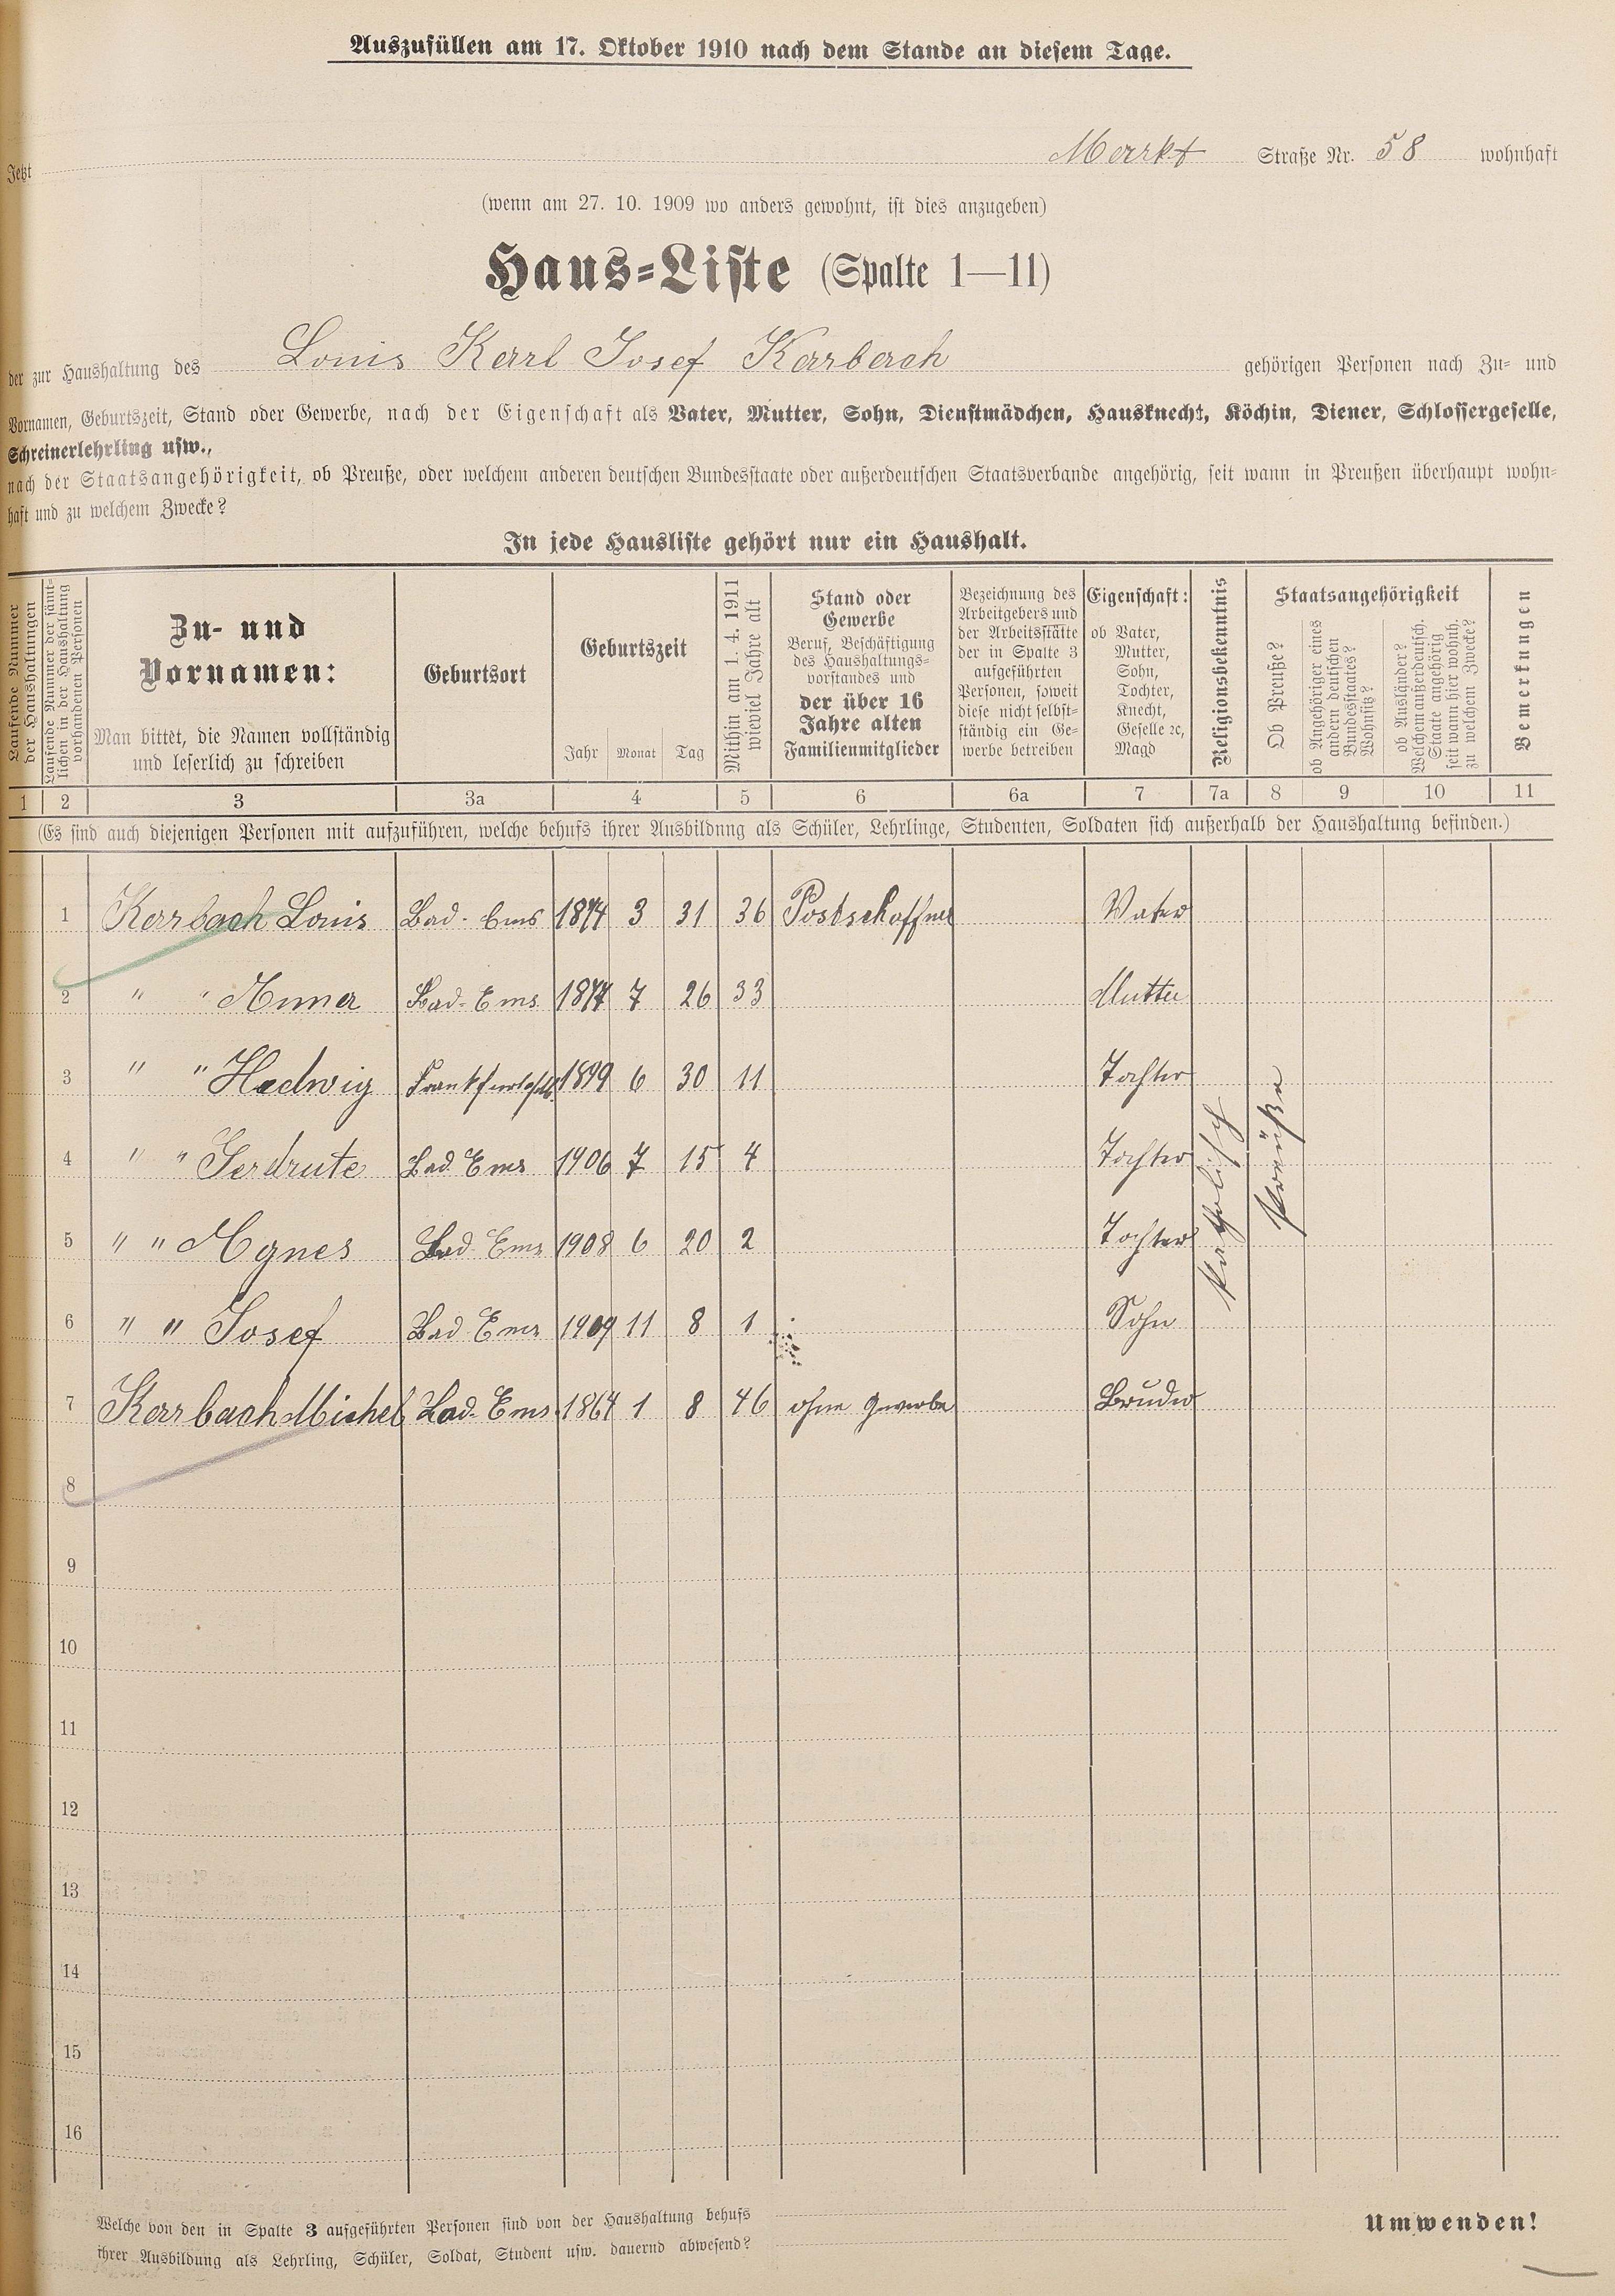 Auszufüllen am 17. Oktober 1910 nach dem Stande an diesem Tage.
Jetzt Markt Straße Nr. 58 wohnhaft
(wenn am 27. 10. 1909 wo anders gewohnt, ist dies anzugeben)
Haus-Liste (Spalte 1—11)
der zur Haushaltung des Louis Karl Josef Karbach gehörigen Personen nach Zu- und
Vornamen, Geburtszeit, Stand oder Gewerbe, nach der Eigenschaft als Vater, Mutter, Sohn, Dienstmädchen, Hausknecht, Köchin, Diener, Schlossergeselle,
Schreinerlehrling usw.,
nach der Staatsangehörigkeit, ob Preuße, oder welchem anderen deutschen Bundesstaate oder außerdeutschen Staatsverbande angehörig, seit wann in Preußen überhaupt wohn-
haft und zu welchem Zwecke?
In jede Hausliste gehört nur ein Haushalt.
Laufende Nummer
der Haushaltungen
Laufende Nummer der sämt-
lichen in der Haushaltung
vorhandenen Personen
Zu- und
Vornamen:
Man bittet, die Namen vollständig
und leserlich zu schreiben
Geburtsort
Geburtszeit
Jahr Monat Tag
Mithin am 1. 4. 1911
wieviel Jahre alt
Stand oder
Gewerbe
Beruf, Beschäftigung
des Haushaltungs-
vorstandes und
der über 16
Jahre alten
Familienmitglieder
Bezeichnung des
Arbeitgebers und
der Arbeitsstätte
der in Spalte 3
aufgeführten
Personen, soweit
diese nicht selbst-
ständig ein Ge-
werbe betreiben
Eigenschaft:
ob Vater,
Mutter,
Sohn,
Tochter,
Knecht,
Geselle ꝛc,
Magd
Religionsbekenntnis
Staatsangehörigkeit
Ob Preuße?
ob Angehöriger eines
andern deutschen
Bundesstaates?
Wohnsitz?
ob Ausländer?
Welchem außerdeutsch.
Staate angehörig
seit wann hier wohnh.
zu welchem Zwecke?
Bemerkungen
1 2 3 3a 4 5 6 6a 7 7a 8 9 10 11
(Es sind auch diejenigen Personen mit aufzuführen, welche behufs ihrer Ausbildung als Schüler, Lehrlinge, Studenten, Soldaten sich außerhalb der Haushaltung befinden.)
1 Karrbach Louis Bad-Ems 1874 3 31 36 Postschaffner Vater
2 " " Anna Bad-Ems 1877 7 26 33 Mutter
3 " " Hedwig 1899 6 30 11 Tochter
4 " " Gerdrute Bad Ems 1906 7 15 4 Tochter
5 " " Agnes Bad Ems 1908 6 20 2 Tochter
6 " " Josef Bad Ems 1909 11 8 1 Sohn
7 Karrbach Michel Bad-Ems 1864 1 8 46 ohne Gewerbe Bruder
katholisch
Preuße
8
9
10
11
12
13
14
15
16
Welche von den in Spalte 3 aufgeführten Personen sind von der Haushaltung behufs
ihrer Ausbildung als Lehrling, Schüler, Soldat, Student usw. dauernd abwesend?
Umwenden!